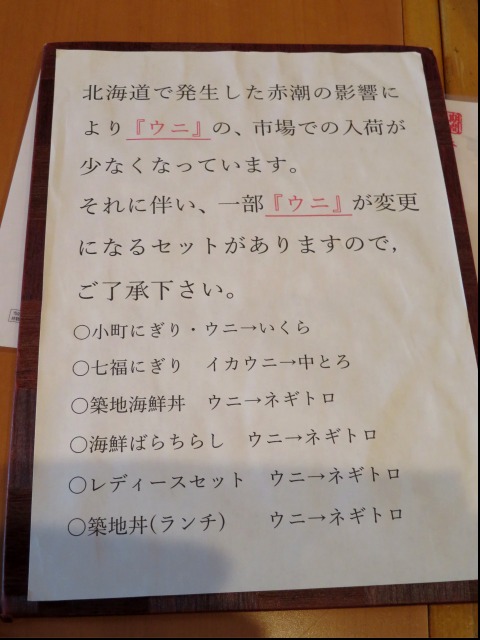 北海道で発生した赤潮の影響に
より『ウニ』の、市場での入荷が
少なくなっています。
それに伴い、一部『ウニ』が変更
になるセットがありますので，
ご了承下さい。
○小町にぎり・ウニ→いくら
○七福にぎり　イカウニ→中とろ
○築地海鮮丼　ウニ→ネギトロ
○海鮮ばらちらし　ウニ→ネギトロ
○レディースセット　ウニ→ネギトロ
○築地丼(ランチ)　　ウニ→ネギトロ